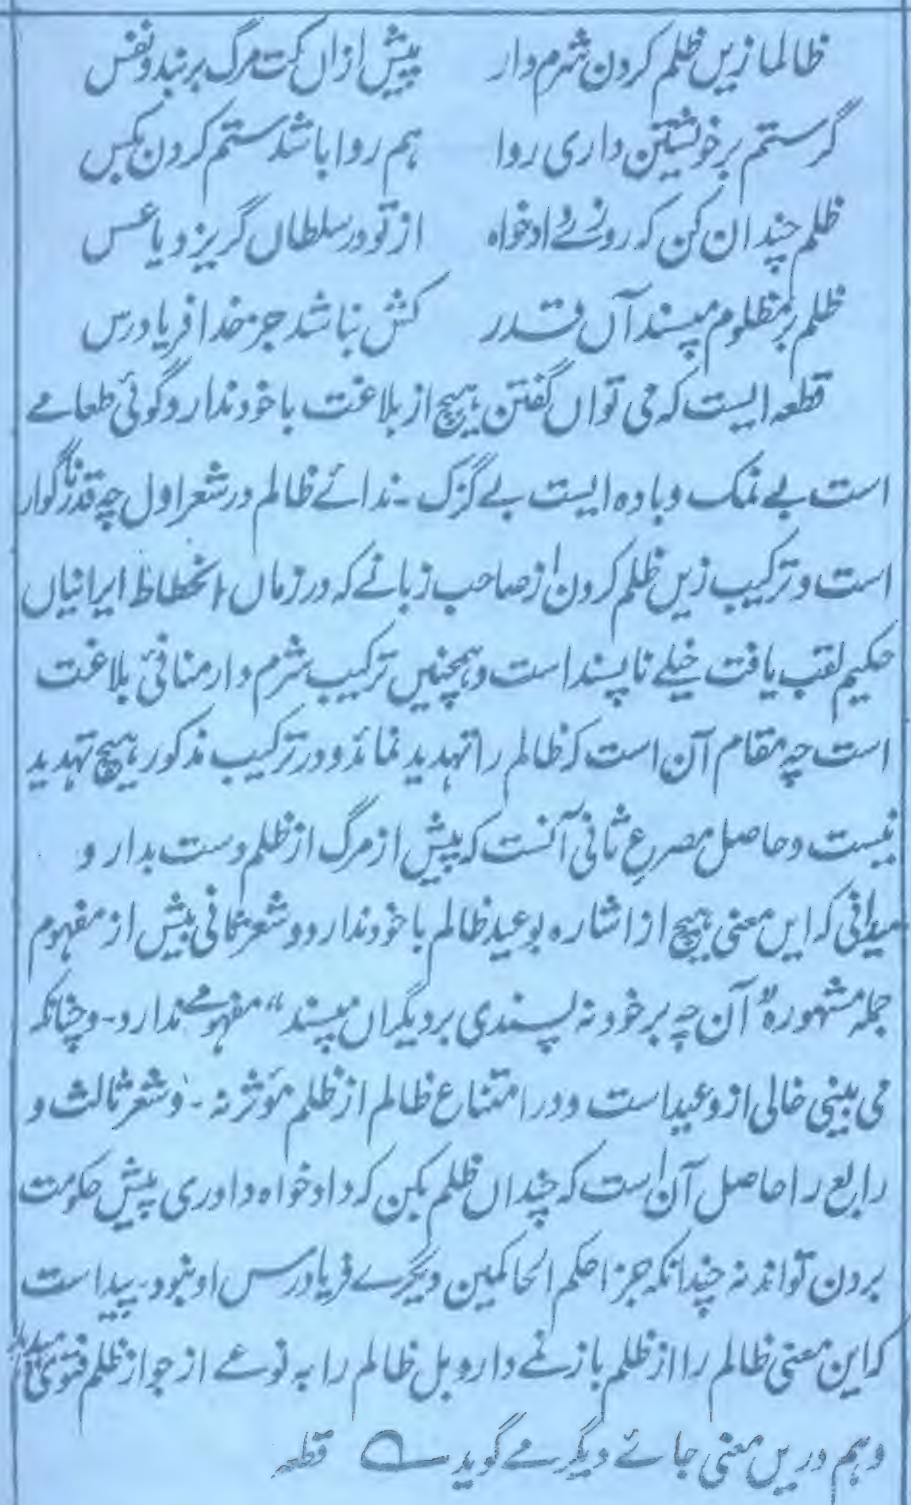 ظالما زیں ظلم کردن شرم دار پیش ازاں کت مرگ بربندد نفس
گر ستم بر خویشتن داری روا ہم روا باشد ستم کردن بکس
ظلم چندان کن کہ روزے دادخواہ از تو در سلطاں گریزد یا عسس
ظلم بر مظلوم مپسند آں قدر کش نباشد جز خدا فریادرس
قطعہ ایست کہ می تواں گفتن ہیچ از بلاغت با خود ندارد گوئی طعامے
است بے نمک و بادہ ایست بے گزک ۔ ندائے ظالم در شعر اول چہ قدر ناگوار
است و ترکیب زیں ظلم کردن از صاحب زبانے کہ در زماں انحطاط ایرانیاں
حکیم لقب یافت خیلے ناپسند است و ہمچنیں ترکیب شرم دار منافیٔ بلاغت
است چہ مقام آن است کہ ظالم را تہدید نماند و در ترکیب مذکور ہیچ تہدید
نیست و حاصل مصرع ثانی آنست کہ پیش از مرگ از ظلم دست بدار و
میدانی کہ ایں معنی ہیچ از اشارہ بوعید ظالم با خود ندارد و شعر ثانی بیش از مفہوم
جملہ مشہورہ "آن چہ بر خود نہ پسندی بر دیگراں مپسند" مفہومے ندارد ۔ و چنانکہ
می بینی خالی از وعید است و در امتناع ظالم از ظلم مؤثر نہ ۔ و شعر ثالث و
رابع را حاصل آن است کہ چنداں ظلم بکن کہ دادخواہ داوری پیش حکومت
بردن تواند نہ چندانکہ جز احکم الحاکمین دیگرے فریادرس او نبود ۔ پیداست
کہ این معنی ظالم را از ظلم باز نے دارد بل ظالم را بہ نوعے از جواز ظلم فتویٰ میدہد
و ہم دریں معنی جائے دیگر مے گوید قطعہ